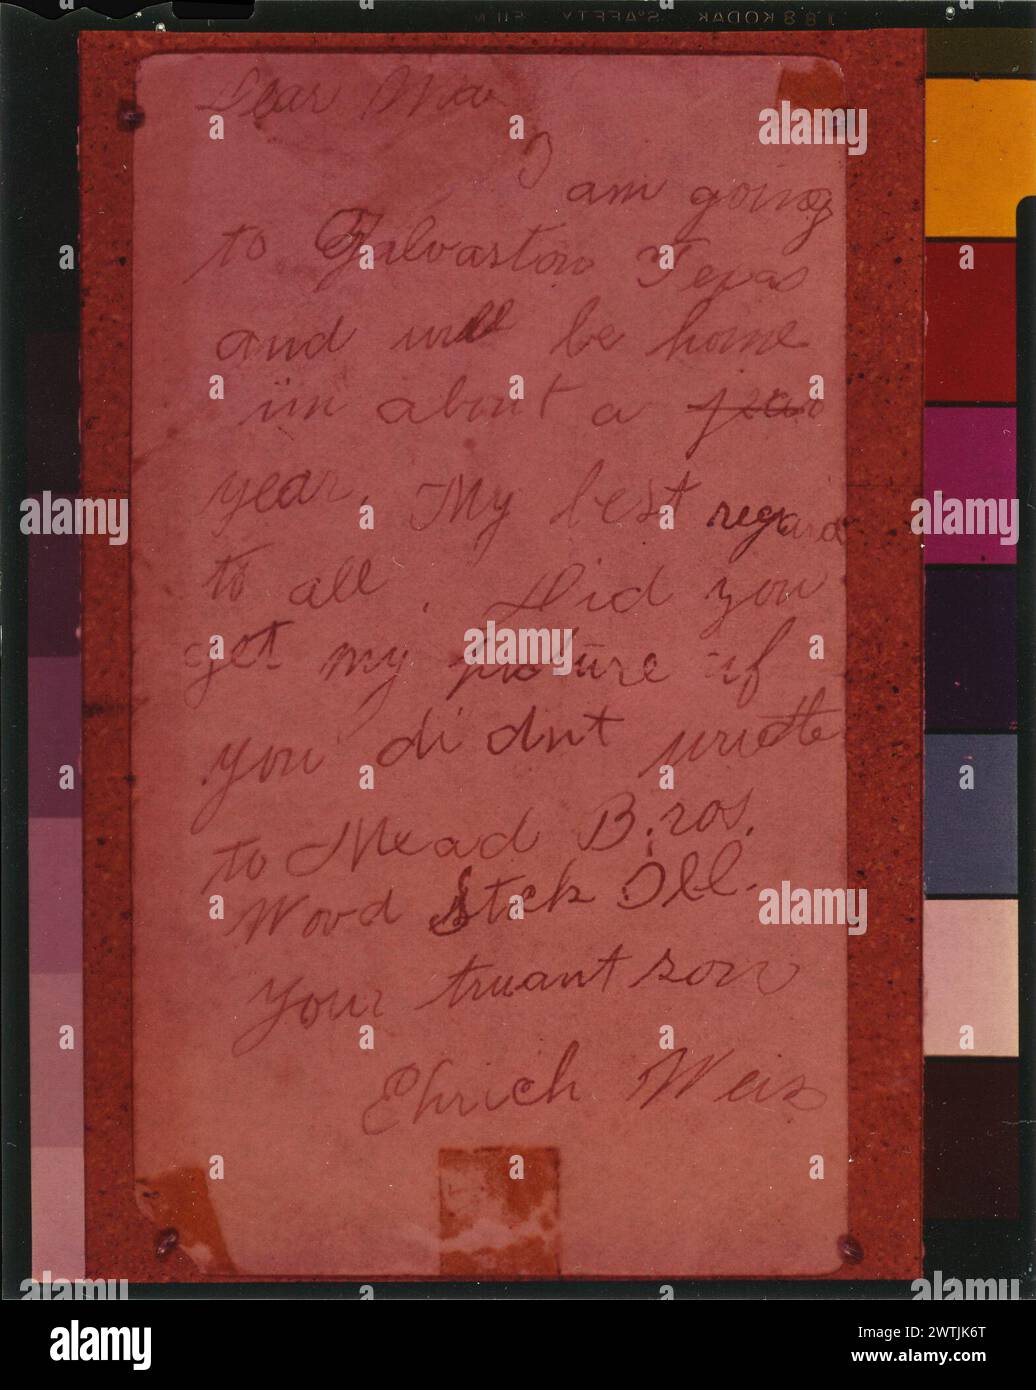 188 KODAK SAFETY FILM
Dear Ma
I am going
to Galvaston Texas
and will be home
in about a year
year. My best regard
to all. Did you
get my picture if
you didnt write
to Mead Bros.
Wood Stck Ill.
Your truant son
Ehrich Weis
alamy
a
a
alamy
Image ID: 2WTJK6T
www.alamy.com